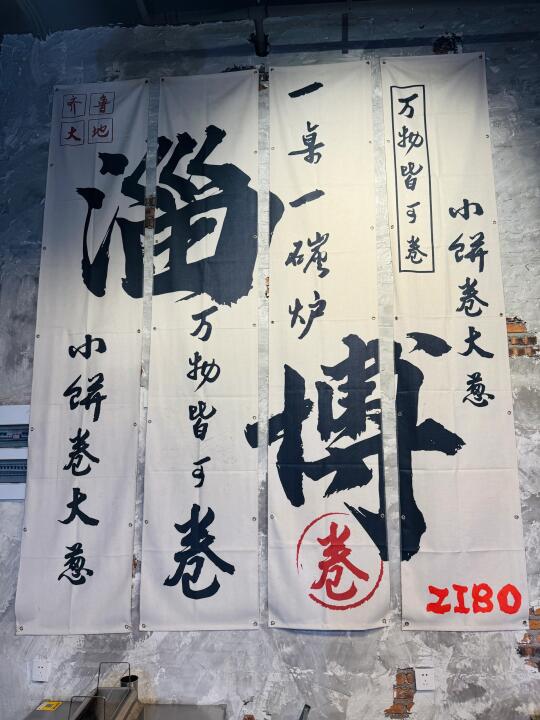 齐鲁
大地
淄博
小餅卷大葱
万物皆可卷
一桌一碳炉
卷
万物皆可卷
小餅卷大葱
ZIBO